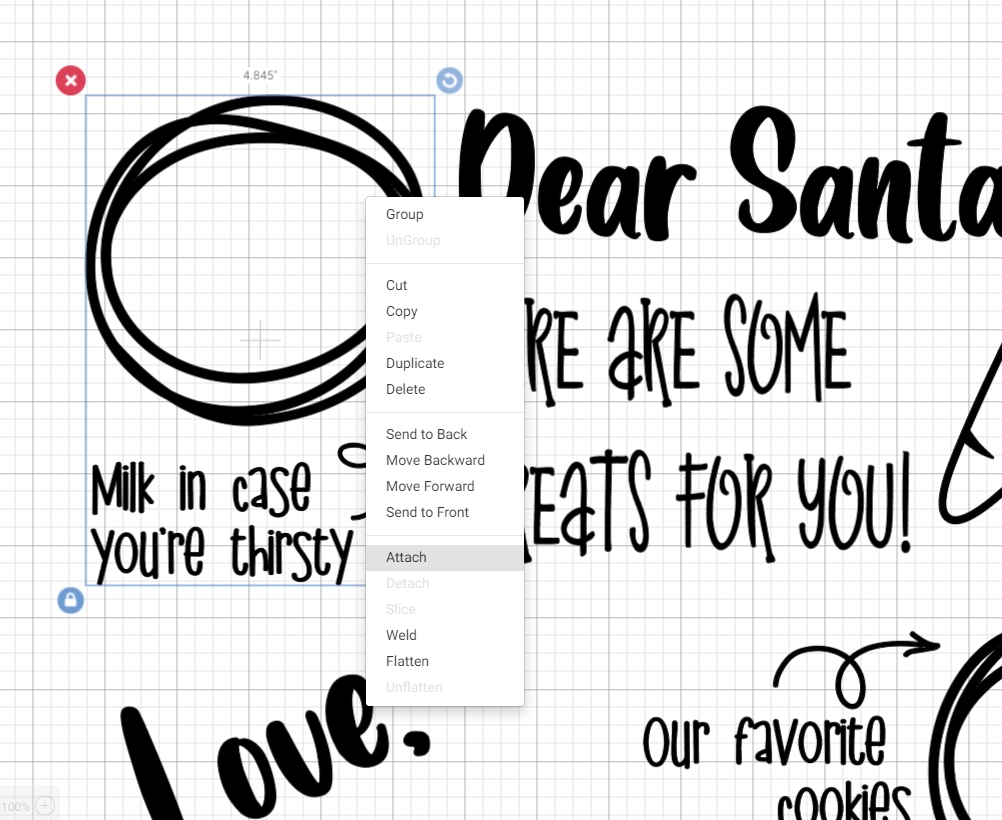 4.845"
Dear Santa
RE ARE SOME
REATS FOR YOU!
Milk in case
you're thirsty
Group
UnGroup
Cut
Copy
Paste
Duplicate
Delete
Send to Back
Move Backward
Move Forward
Send to Front
Attach
Detach
Slice
Weld
Flatten
Unflatten
Love,
our favorite
cookies
100%